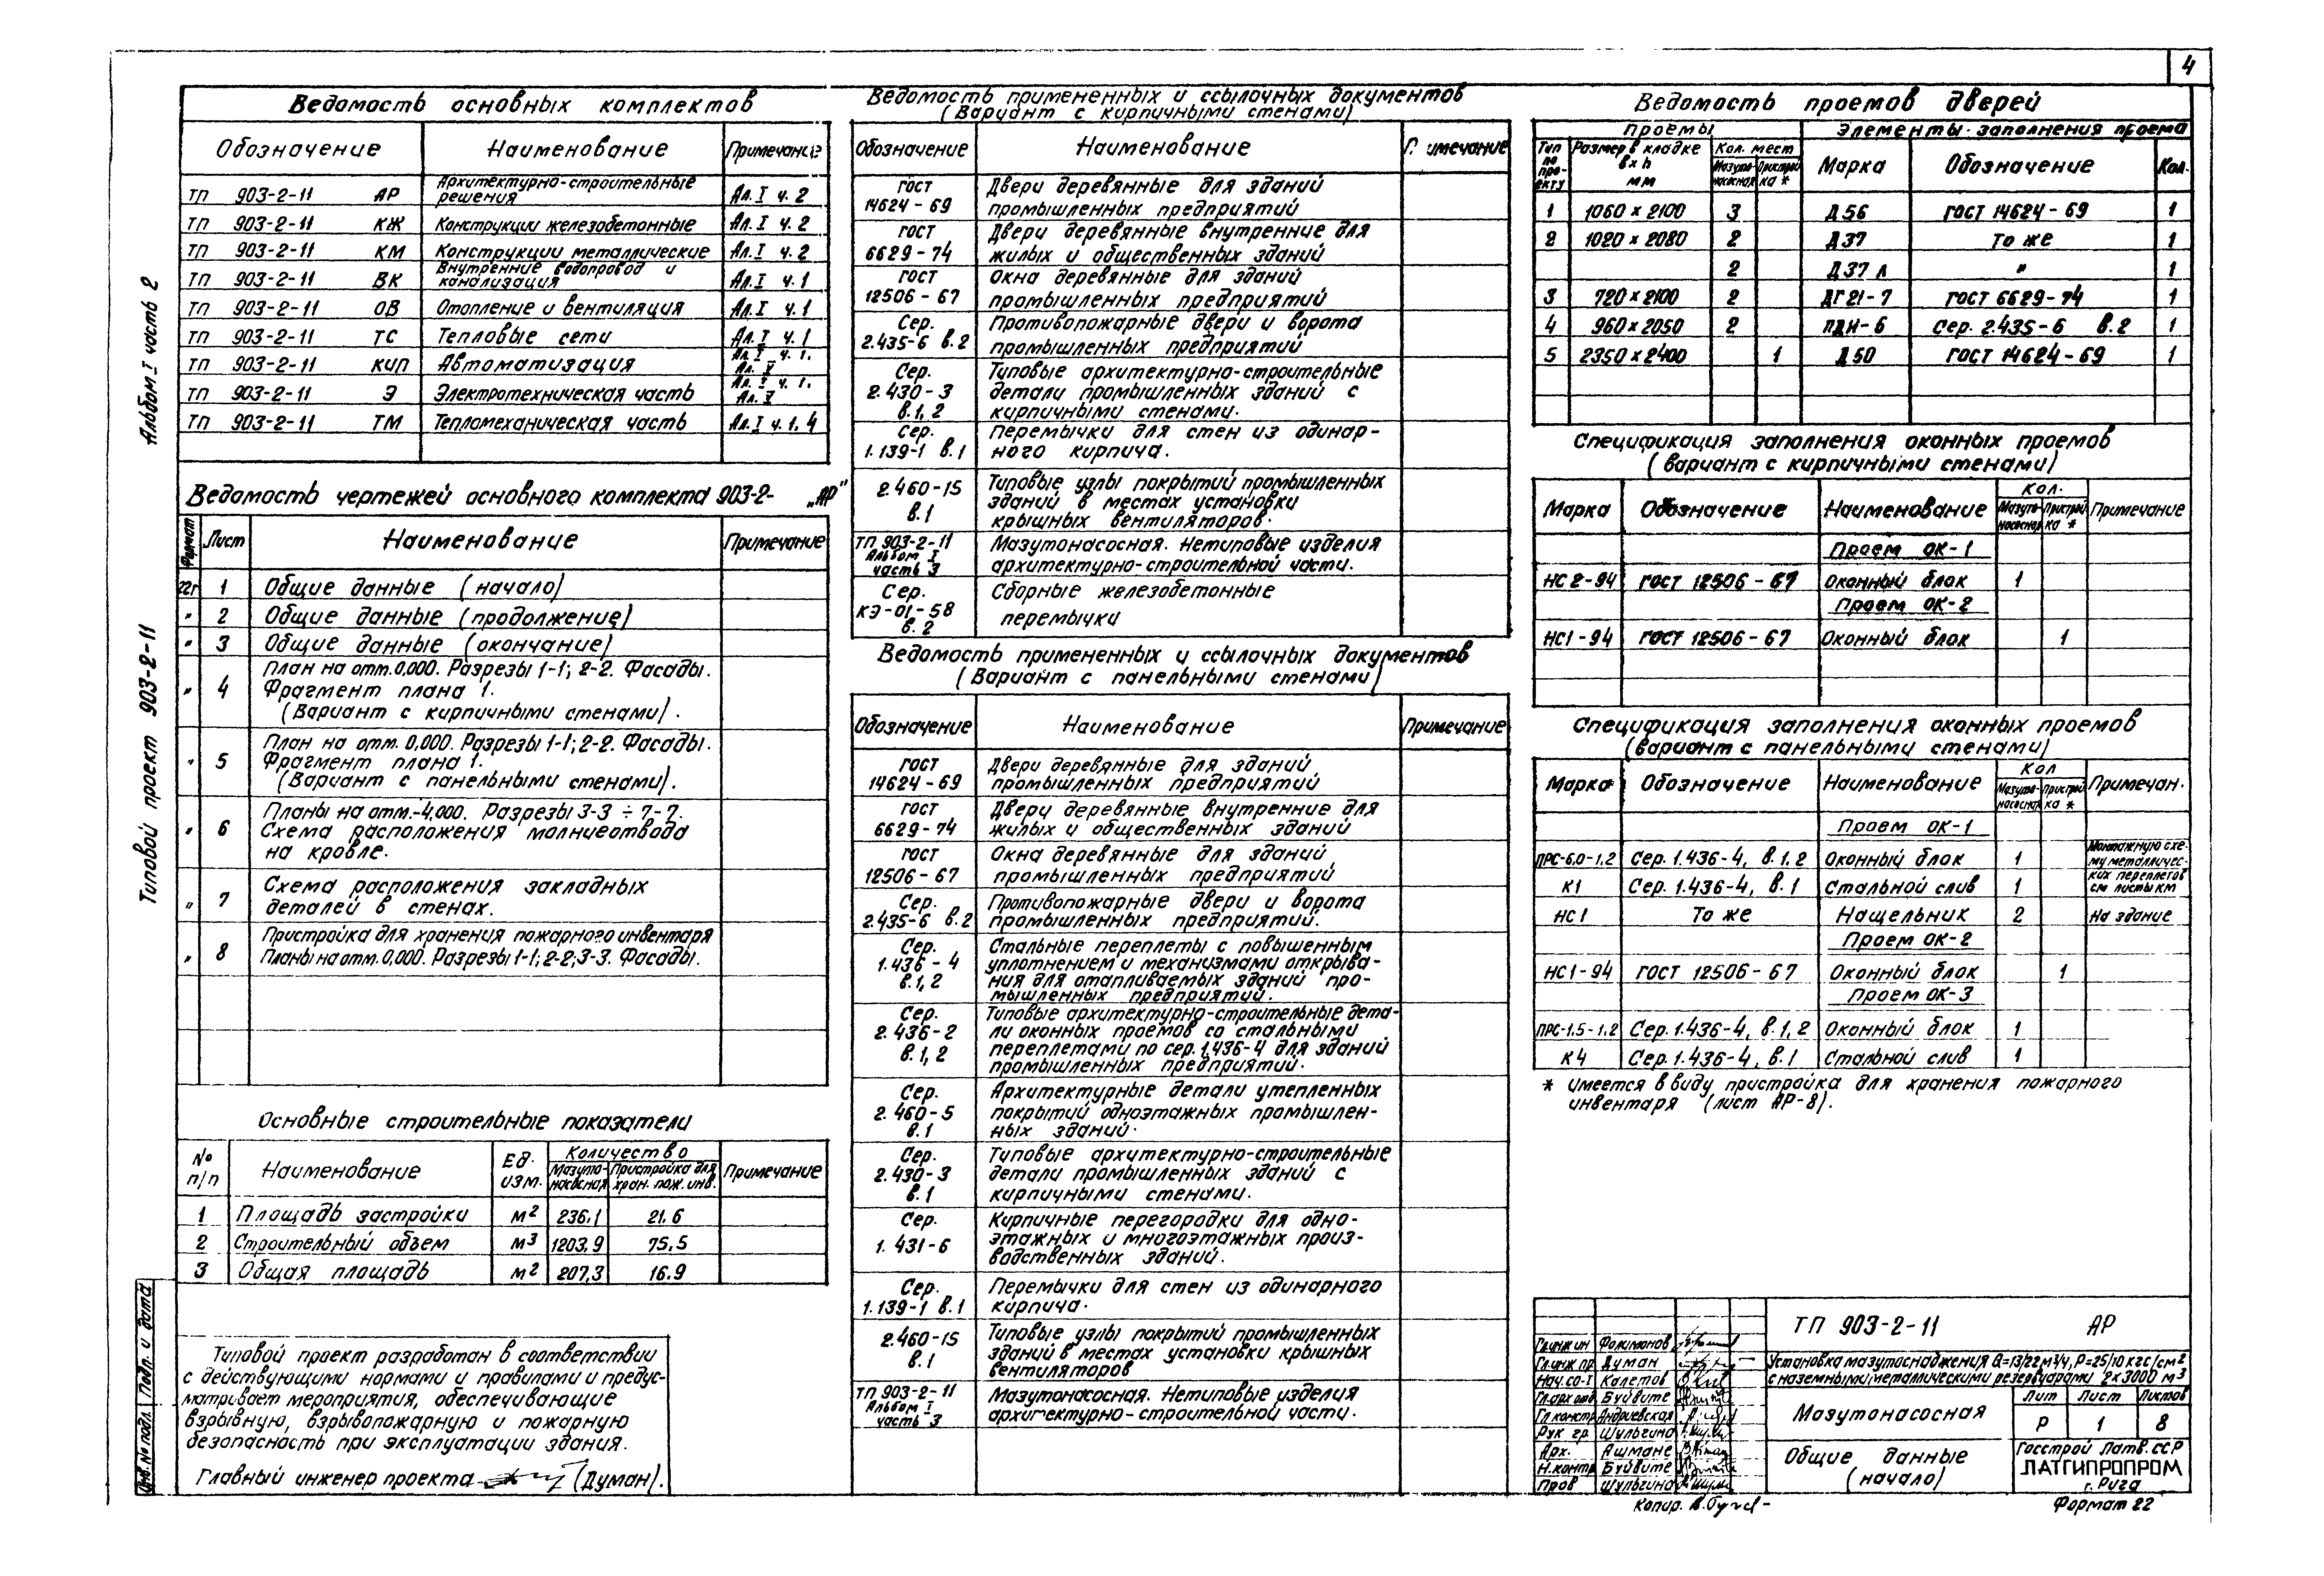 4
Альбом I часть 2
Типовой проект 903-2-11
Инв.№ подл. Подп. и дата
Ведомость основных комплектов
Обозначение Наименование Примечание
ТП 903-2-11 АР Архитектурно-строительные решения Ал. I ч. 2
ТП 903-2-11 КЖ Конструкции железобетонные Ал. I ч. 2
ТП 903-2-11 КМ Конструкции металлические Ал. I ч. 2
ТП 903-2-11 ВК Внутренние водопровод и канализация Ал. I ч. 1
ТП 903-2-11 ОВ Отопление и вентиляция Ал. I ч. 1
ТП 903-2-11 ТС Тепловые сети Ал. I ч. 1
ТП 903-2-11 КИП Автоматизация Ал. I ч. 1. Ал. V
ТП 903-2-11 Э Электротехническая часть Ал. I ч. 1. Ал. V
ТП 903-2-11 ТМ Тепломеханическая часть Ал. I ч. 1, 4
Ведомость чертежей основного комплекта 903-2- „АР"
Формат Лист Наименование Примечание
22г 1 Общие данные (начало)
" 2 Общие данные (продолжение)
" 3 Общие данные (окончание)
" 4 План на отм. 0,000. Разрезы 1-1; 2-2. Фасады.
Фрагмент плана 1.
(Вариант с кирпичными стенами).
" 5 План на отм. 0,000. Разрезы 1-1; 2-2. Фасады.
Фрагмент плана 1.
(Вариант с панельными стенами).
" 6 Планы на отм.-4,000. Разрезы 3-3 ÷ 7-7.
Схема расположения молниеотвода
на кровле.
" 7 Схема расположения закладных
деталей в стенах.
" 8 Пристройка для хранения пожарного инвентаря
Планы на отм. 0,000. Разрезы 1-1; 2-2; 3-3. Фасады.
Основные строительные показатели
№ п/п Наименование Ед. изм. Количество Примечание
Мазуто-насосная Пристройка для хран. пож. инв.
1 Площадь застройки м² 236,1 21,6
2 Строительный объем м³ 1203,9 75,5
3 Общая площадь м² 207,3 16.9
Типовой проект разработан в соответствии
с действующими нормами и правилами и предус-
матривает мероприятия, обеспечивающие
взрывную, взрывопожарную и пожарную
безопасность при эксплуатации здания.
Главный инженер проекта (Думан).
Ведомость примененных и ссылочных документов
(Вариант с кирпичными стенами)
Обозначение Наименование П имечание
ГОСТ 14624-69 Двери деревянные для зданий
промышленных предприятий
ГОСТ 6629-74 Двери деревянные внутренние для
жилых и общественных зданий
ГОСТ 12506-67 Окна деревянные для зданий
промышленных предприятий
Сер. 2.435-6 в.2 Противопожарные двери и ворота
промышленных предприятий
Сер. 2.430-3 в.1,2 Типовые архитектурно-строительные
детали промышленных зданий с
кирпичными стенами.
Сер. 1.139-1 в.1 Перемычки для стен из одинар-
ного кирпича.
2.460-15 в.1 Типовые узлы покрытий промышленных
зданий в местах установки
крышных вентиляторов.
ТП 903-2-11 Альбом I часть 3 Мазутонасосная. Нетиповые изделия
архитектурно-строительной части.
Сер. КЭ-01-58 в.2 Сборные железобетонные
перемычки
Ведомость примененных и ссылочных документов
(Вариант с панельными стенами)
Обозначение Наименование Примечание
ГОСТ 14624-69 Двери деревянные для зданий
промышленных предприятий
ГОСТ 6629-74 Двери деревянные внутренние для
жилых и общественных зданий
ГОСТ 12506-67 Окна деревянные для зданий
промышленных предприятий
Сер. 2.435-6 в.2 Противопожарные двери и ворота
промышленных предприятий.
Сер. 1.436-4 в.1,2 Стальные переплеты с повышенным
уплотнением и механизмами открыва-
ния для отапливаемых зданий про-
мышленных предприятий.
Сер. 2.436-2 в.1,2 Типовые архитектурно-строительные дета-
ли оконных проемов со стальными
переплетами по сер. 1.436-4 для зданий
промышленных предприятий.
Сер. 2.460-5 в.1 Архитектурные детали утепленных
покрытий одноэтажных промышлен-
ных зданий.
Сер. 2.430-3 в.1 Типовые архитектурно-строительные
детали промышленных зданий с
кирпичными стенами.
Сер. 1.431-6 Кирпичные перегородки для одно-
этажных и многоэтажных произ-
водственных зданий.
Сер. 1.139-1 в.1 Перемычки для стен из одинарного
кирпича.
2.460-15 в.1 Типовые узлы покрытий промышленных
зданий в местах установки крышных
вентиляторов
ТП 903-2-11 Альбом I часть 3 Мазутонасосная. Нетиповые изделия
архитектурно-строительной части.
Ведомость проемов дверей
Проемы Элементы заполнения проема
Тип по про-екту Размер в кладке в x h мм Кол. мест Марка Обозначение Кол.
Мазуто-насосная Пристрой-ка *
1 1060 x 2100 3 Д56 ГОСТ 14624-69 1
2 1020 x 2080 2 Д37 То же 1
2 Д37 л " 1
3 720 x 2100 2 ДГ 21-7 ГОСТ 6629-74 1
4 960 x 2050 2 ПДН-6 Сер. 2.435-6 в.2 1
5 2350 x 2400 1 Д50 ГОСТ 14624-69 1
Спецификация заполнения оконных проемов
(вариант с кирпичными стенами)
Марка Обозначение Наименование Кол. Примечание
Мазуто-насосная Пристрой-ка *
Проем ОК-1
НС 2-94 ГОСТ 12506-67 Оконный блок 1
Проем ОК-2
НС1-94 ГОСТ 12506-67 Оконный блок 1
Спецификация заполнения оконных проемов
(вариант с панельными стенами)
Марка Обозначение Наименование Кол Примечан.
Мазуто-насосная Пристрой-ка *
Проем ОК-1
ПРС-6.0-1.2 Сер. 1.436-4, в.1,2 Оконный блок 1 Монтажную схе-му металличес-ких переплетов см листы КМ
К1 Сер. 1.436-4, в.1 Стальной слив 1
НС1 То же Нащельник 2 На здание
Проем ОК-2
НС1-94 ГОСТ 12506-67 Оконный блок 1
Проем ОК-3
ПРС-1.5-1.2 Сер. 1.436-4, в.1,2 Оконный блок 1
К4 Сер. 1.436-4, в.1 Стальной слив 1
* имеется в виду пристройка для хранения пожарного
инвентаря (лист АР-8).
ТП 903-2-11 АР
Гл.инж.пр Думан
Нач.со-1 Калетов
Гл.арх.отд Буйвите
Гл.констр Андриевская
Рук гр. Шульгина
Арх. Ашмане
Н.контр Буйвите
Пров Шульгина
Установка мазутоснабжения Q=13/22м³/ч, Р=25/10 кгс/см²
с наземными металлическими резервуарами 2x3000 м³
Мазутонасосная
Лит Лист Листов
Р 1 8
Общие данные
(начало)
Госстрой Латв. ССР
ЛАТГИПРОПРОМ
г. Рига
Копир.
Формат 22